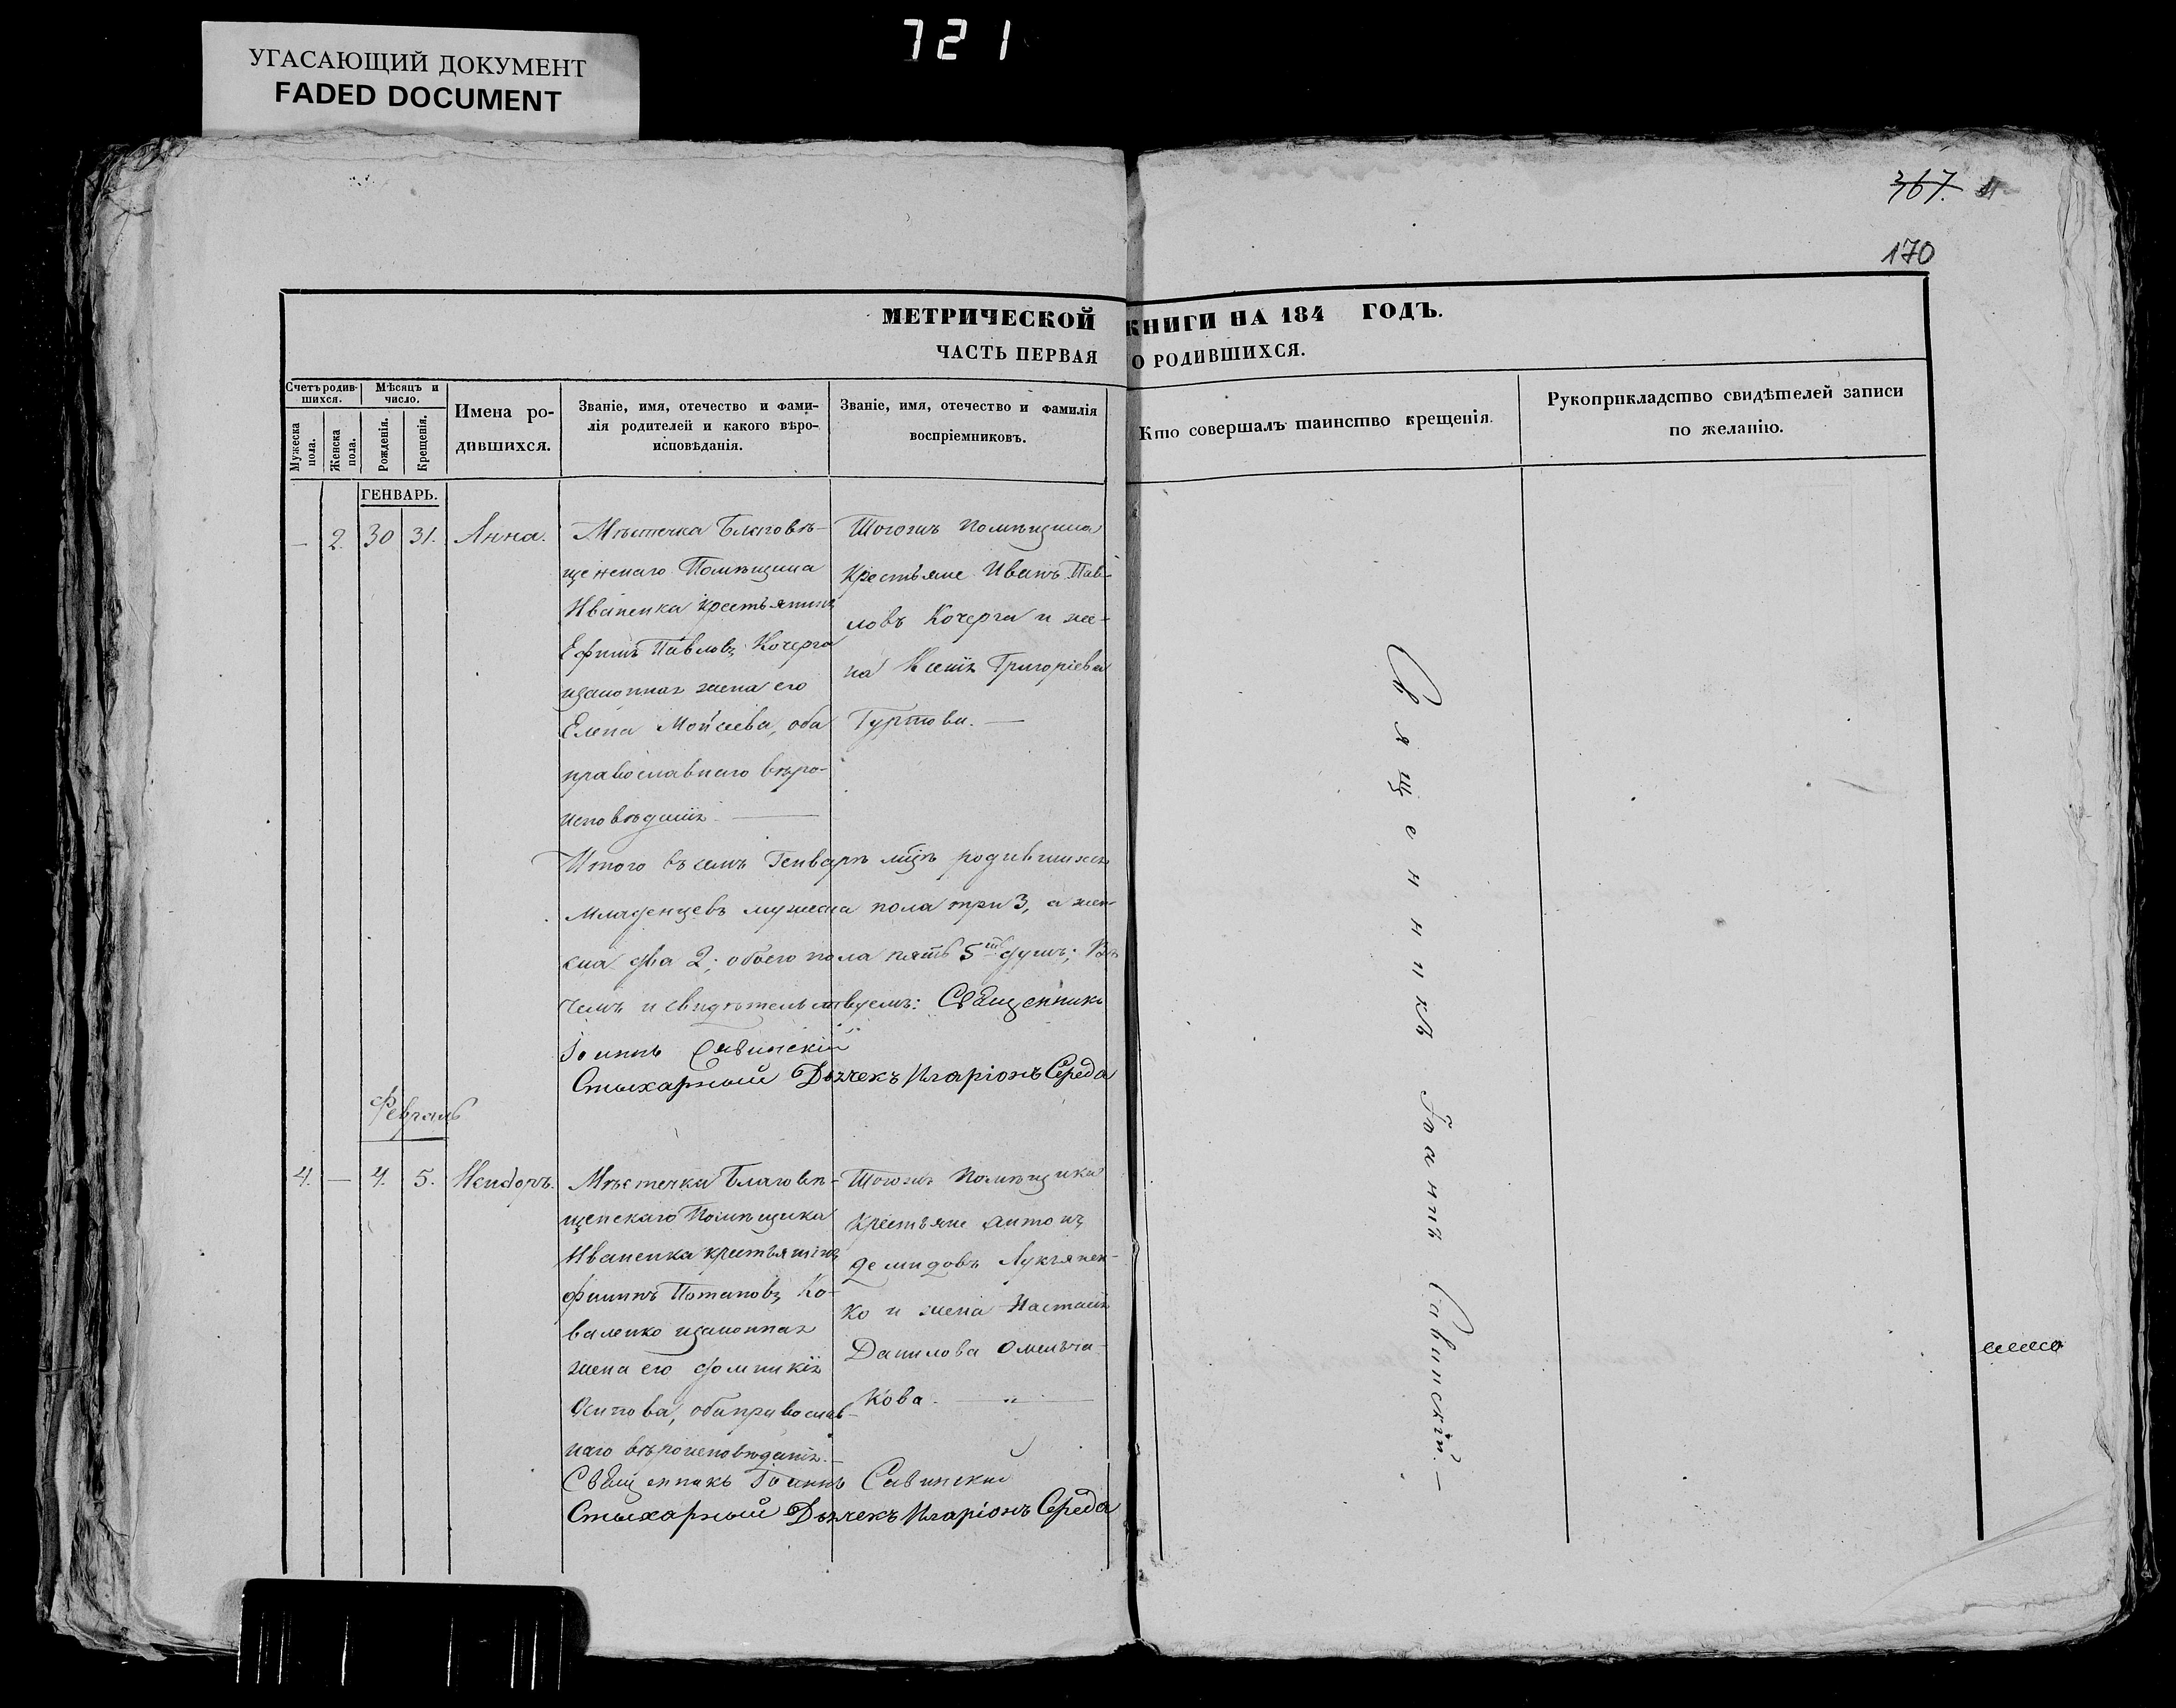 721
УГАСАЮЩИЙ ДОКУМЕНТ
FADED DOCUMENT
367.
170
МЕТРИЧЕСКОЙ КНИГИ НА 184 ГОДЪ.
ЧАСТЬ ПЕРВАЯ О РОДИВШИХСЯ.
Счетъ родив-
шихся.
Мѣсяцъ и
число.
Мужеска
пола.
Женска
пола.
Рожденія.
Крещенія.
Имена ро-
дившихся.
Званіе, имя, отечество и фами-
лія родителей и какого вѣро-
исповѣданія.
Званіе, имя, отечество и фамилія
воспріемниковъ.
Кто совершалъ таинство крещенія.
Рукоприкладство свидѣтелей записи
по желанію.
ГЕНВАРЬ.
— 2. 30 31. Анна.
Мѣстечка Благовѣ-
щенскаго Помѣщика
Иваненка крестьянинъ
Ефимъ Павловъ Кочерга
изаконная жена его
Елена Мойсеева, оба
православнаго вѣро-
исповѣданія. —
Тогожъ Помѣщика
Крестьяне Иванъ Пав-
ловъ Кочерга и же-
на Ксенія Григоріева
Гуртова. —
Итого въ семъ Генваръ мцѣ родившихся
Младенцевъ мужеска пола три 3, а жен-
ска два 2; обоего пола пять 5 душъ; Въ
чемъ и свидѣтельствуемъ: Священникъ
Іоаннъ Савинскій
Стихарный Дьячекъ Иларіонъ Середа
Февраль
4. — 4. 5. Исидоръ.
Мѣстечка Благовѣ-
щенскаго Помѣщика
Иваненка крестьянинъ
Филиппъ Потаповъ Ко-
валенко изаконная
жена его Домникія
Осипова, оба православ-
наго вѣроисповѣданія. —
Тогожъ Помѣщика
Крестьяне Антонъ
Демидовъ Лукьянен-
ко и жена Настасія
Данилова Омельча-
кова. —
Священникъ Іоаннъ Савинскій
Стихарный Дьячекъ Иларіонъ Середа
Священникъ Іоаннъ Савинскій. —